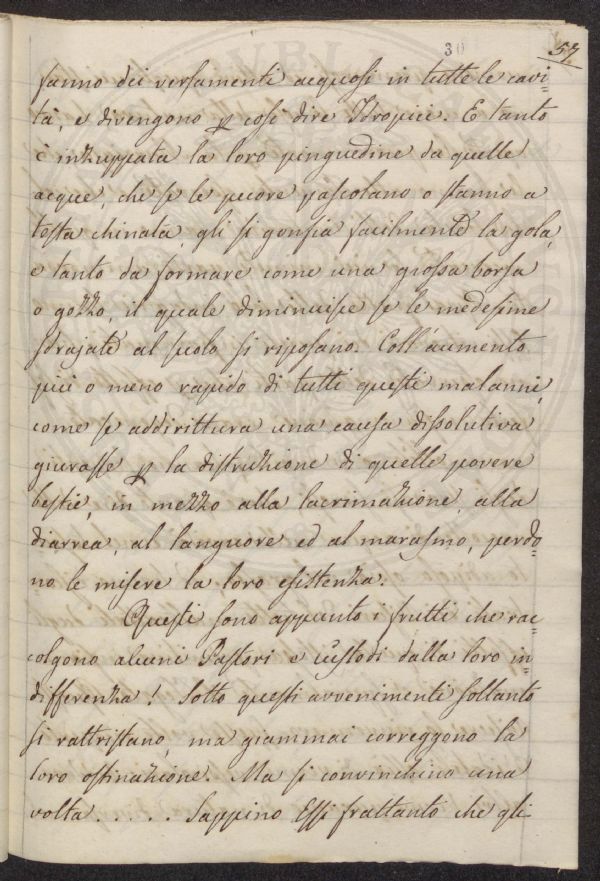 30
57
fanno dei versamenti acquosi in tutte le cavi=
tà, e divengono p così dire Idropici. E tanto
è inzuppata la loro pinguedine da quelle
acque, che se le pecore pascolano o stanno a
testa chinata, gli si gonfia facilmente la gola,
e tanto da formare come una grossa borsa
o gozzo, il quale diminuisce se le medesime
sdrajate al suolo si riposano. Coll'aumento
più o meno rapido di tutti questi malanni,
come se addirittura una causa dissolutiva
giurasse p la distruzione di quelle povere
bestie, in mezzo alla lacrimazione, alla
diarrea, al languore ed al marasmo, perdo=
no le misere la loro esistenza.
Questi sono appunto i frutti che rac=
colgono alcuni Pastori e custodi dalla loro in=
differenza! Sotto questi avvenimenti soltanto
si rattristano, ma giammai correggono la
loro ostinazione. Ma si convinchino una
volta . . . . . Sappino Essi frattanto che gli